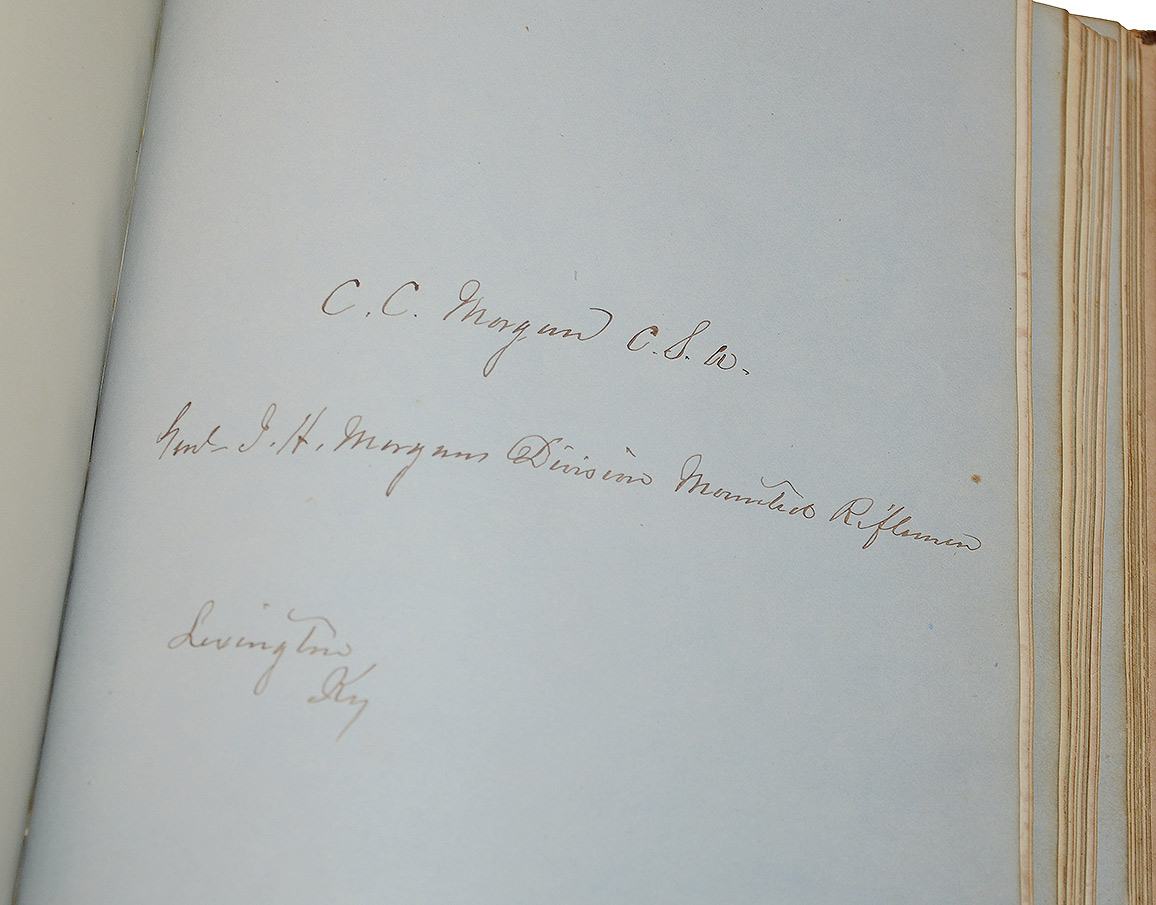 C. C. Morgan C. S. A.
Genl J. H. Morgans Division Mounted Riflemen
Lexington
Ky